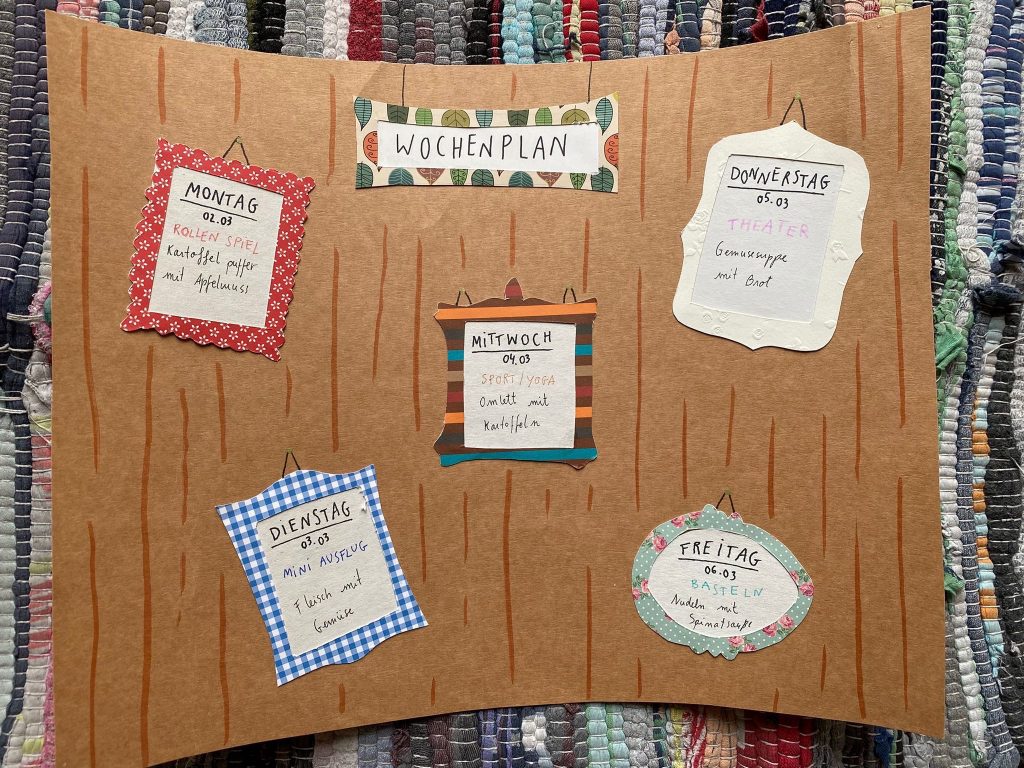 WOCHENPLAN
MONTAG
02.03
ROLLEN SPIEL
Kartoffel puffer
mit Apfelmuss
DIENSTAG
03.03
MINI AUSFLUG
Fleisch mit
Gemüse
MITTWOCH
04.03
SPORT/YOGA
Omlett mit
Kartoffeln
DONNERSTAG
05.03
THEATER
Gemusesuppe
mit Brot
FREITAG
06.03
BASTELN
Nudeln mit
Spinatsauße